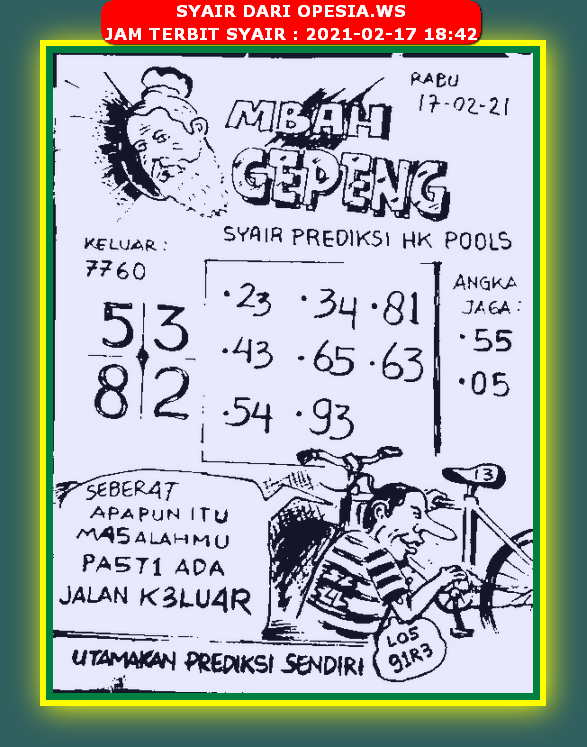 SYAIR DARI OPESIA.WS
JAM TERBIT SYAIR : 2021-02-17 18:42
RABU
17-02-21
MBAH
GEPENG
SYAIR PREDIKSI HK POOLS
KELUAR:
7760
5 3
8 2
·23 ·34 ·81
·43 ·65 ·63
·54 ·93
ANGKA
JAGA:
·55
·05
13
SEBER4T
APAPUN ITU
MA5ALAHMU
PA5T1 ADA
JALAN K3LU4R
LO5
91R3
UTAMAKAN PREDIKSI SENDIRI